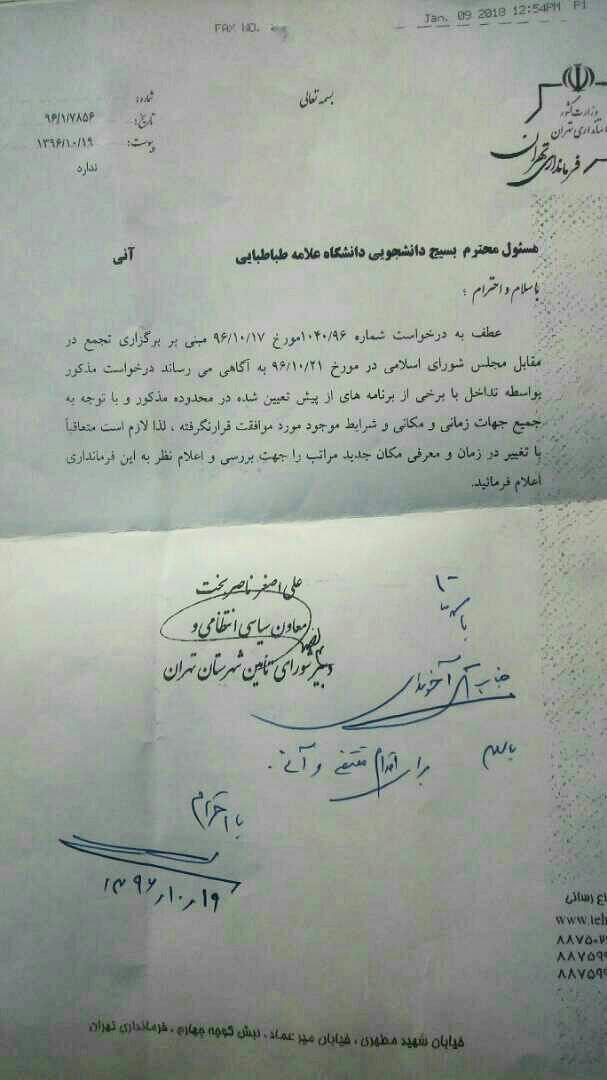 FAX NO.
Jan. 09 2018 12:54PM P1
وزارت کشور
استانداری تهران
فرمانداری تهران
بسمه تعالی
شماره: ۹۶/۱/۷۸۵۶
تاریخ: ۱۳۹۶/۱۰/۱۹
پیوست: ندارد
مسئول محترم بسیج دانشجویی دانشگاه علامه طباطبایی
آنی
با سلام و احترام ؛
عطف به درخواست شماره ۱۰۴۰/۹۶مورخ ۹۶/۱۰/۱۷ مبنی بر برگزاری تجمع در
مقابل مجلس شورای اسلامی در مورخ ۹۶/۱۰/۲۱ به آگاهی می رساند درخواست مذکور
بواسطه تداخل با برخی از برنامه های از پیش تعیین شده در محدوده مذکور و با توجه به
جمیع جهات زمانی و مکانی و شرایط موجود مورد موافقت قرارنگرفته ، لذا لازم است متعاقباً
با تغییر در زمان و معرفی مکان جدید مراتب را جهت بررسی و اعلام نظر به این فرمانداری
اعلام فرمائید.
علی اصغر ناصربخت
معاون سیاسی انتظامی و
دبیر شورای تأمین شهرستان تهران
جناب آقای آخوندی
با سلام
برای اقدام مقتضی و آنی.
با احترام
۱۳۹۶/۱۰/۱۹
اع رسانی
www.teh
خیابان شهید مطهری ، خیابان میر عماد ، نبش کوچه چهارم ، فرمانداری تهران